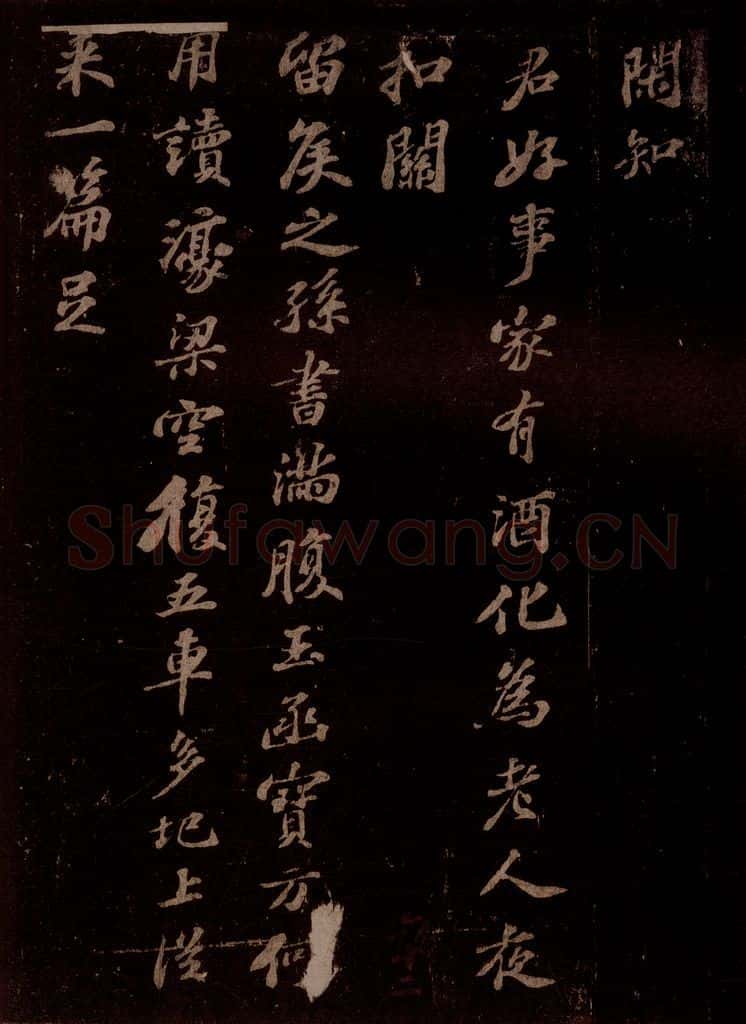 閑知
君好事家有酒化為老人夜
扣關
留矦之孫書滿腹玉函寶方何
用讀濠梁空復五車多圯上從
来一篇足
Shufawang.CN